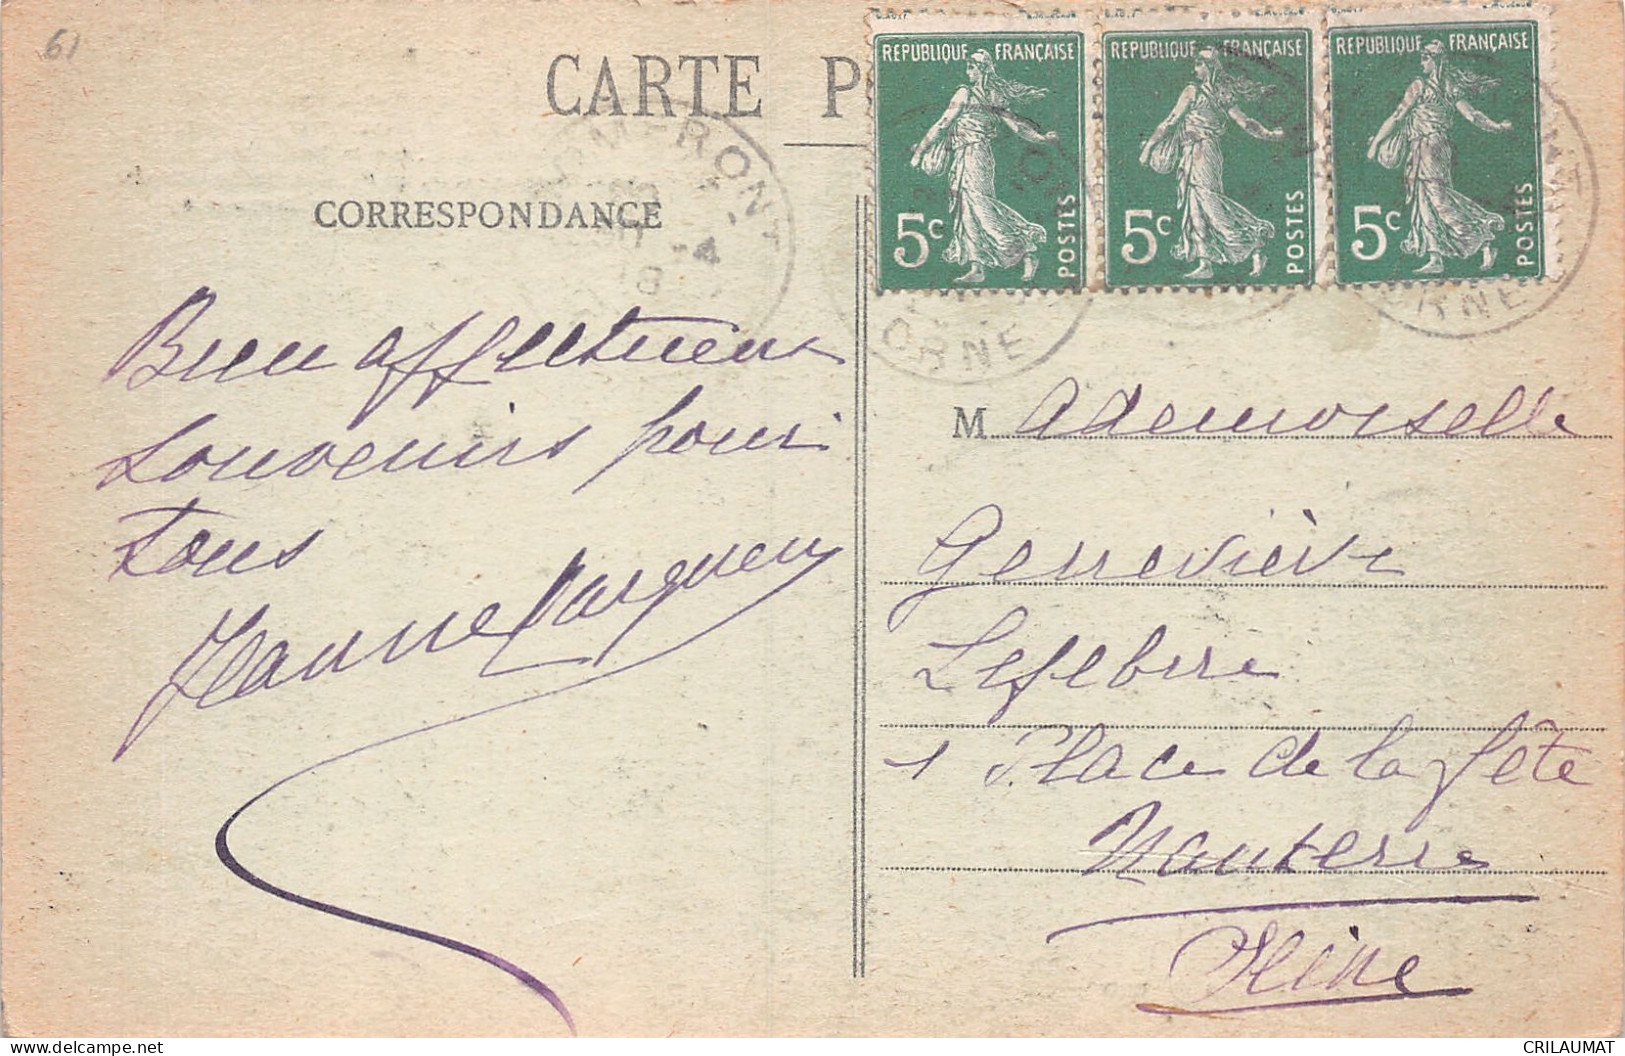 61
CARTE P
REPUBLIQUE FRANÇAISE
5c POSTES
REPUBLIQUE FRANÇAISE
5c POSTES
REPUBLIQUE FRANÇAISE
5c POSTES
DOMFRONT
-4
18
ORNE
ORNE
CORRESPONDANCE
Bien affectueux
souvenirs pour
tous
Jeanne
Mademoiselle
Geneviève
Lefebvre
1 Place de la fête
Nanterre
Seine
CRILAUMAT